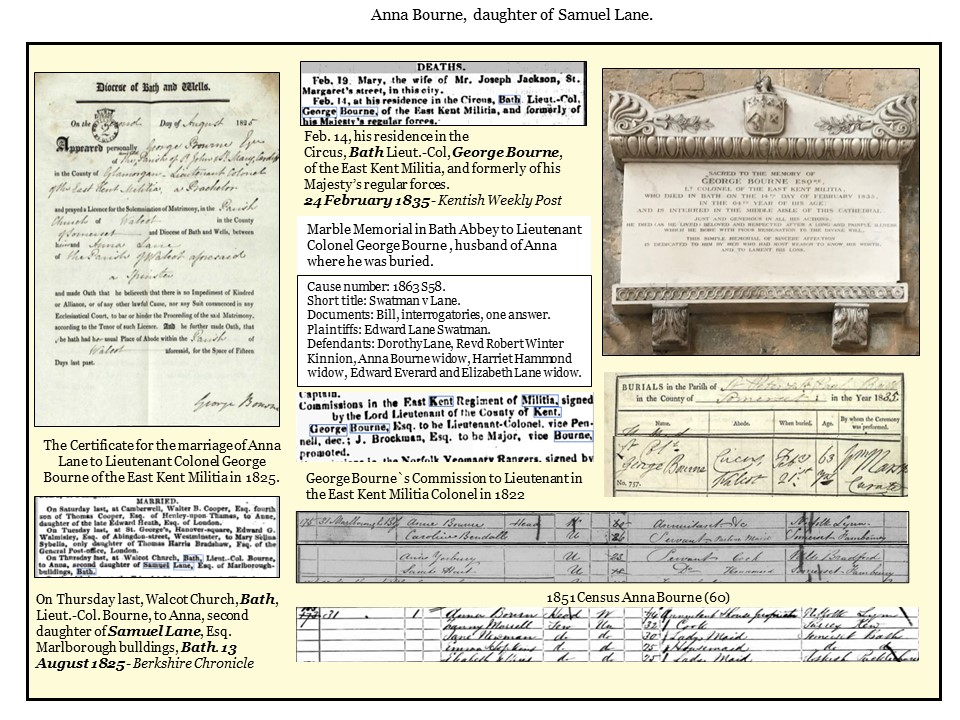 Anna Bourne, daughter of Samuel Lane.
Diocese of Bath and Wells.
On the Second Day of August 1825
Appeared personally George Bourne Esqr
of the Parish of St Johns & St Mary, Cardiff
in the County of Glamorgan, Lieutenant Colonel
of the East Kent Militia, a Bachelor
and prayed a Licence for the Solemnization of Matrimony, in the Parish
Church of Walcot in the County
of Somerset and Diocese of Bath and Wells, between
him and Anna Lane
of the Parish of Walcot aforesaid
a Spinster
and made Oath that he believeth that there is no Impediment of Kindred
or Alliance, or of any other lawful Cause, nor any Suit commenced in any
Ecclesiastical Court, to bar or hinder the Proceeding of the said Matrimony,
according to the Tenor of such Licence. And he further made Oath, that
he hath had usual Place of Abode within the Parish of
Walcot aforesaid, for the Space of Fifteen
Days last past.
George Bourne
The Certificate for the marriage of Anna
Lane to Lieutenant Colonel George
Bourne of the East Kent Militia in 1825.
MARRIED.
On Saturday last, at Camberwell, Walter B. Cooper, Esq. fourth
son of Thomas Cooper, Esq. of Henley-upon Thames, to Anne,
daughter of the late Edward Heath, Esq. of London.
On Tuesday last, at St. George's, Hanover-square, Edward G.
Walmisley, Esq. of Abingdon-street, Westminster, to Mary Selina
Sybella, only daughter of Thomas Harris Bradshaw, Esq. of the
General Post-office, London.
On Thursday last, at Walcot Church, Bath, Lieut.-Col. Bourne,
to Anna, second daughter of Samuel Lane, Esq. of Marlborough-
buildings, Bath.
On Thursday last, Walcot Church, Bath,
Lieut.-Col. Bourne, to Anna, second
daughter of Samuel Lane, Esq.
Marlborough bulldings, Bath. 13
August 1825 - Berkshire Chronicle
DEATHS.
Feb. 19. Mary, the wife of Mr. Joseph Jackson, St.
Margaret's street, in this city.
Feb. 14, at his residence in the Circus, Bath Lieut.-Col.
George Bourne, of the East Kent Militia, and formerly of
his Majesty's regular forces.
Feb. 14, his residence in the
Circus, Bath Lieut.-Col, George Bourne,
of the East Kent Militia, and formerly of his
Majesty's regular forces.
24 February 1835 - Kentish Weekly Post
Marble Memorial in Bath Abbey to Lieutenant
Colonel George Bourne , husband of Anna
where he was buried.
Cause number: 1863 S58.
Short title: Swatman v Lane.
Documents: Bill, interrogatories, one answer.
Plaintiffs: Edward Lane Swatman.
Defendants: Dorothy Lane, Revd Robert Winter
Kinnion, Anna Bourne widow, Harriet Hammond
widow, Edward Everard and Elizabeth Lane widow.
Captain.
Commissions in the East Kent Regiment of Militia, signed
by the Lord Lieutenant of the County of Kent.
George Bourne, Esq. to be Lieutenant-Colonel, vice Pen-
nell, dec.; J. Brockman, Esq. to be Major, vice Bourne,
promoted.
George Bourne`s Commission to Lieutenant in
the East Kent Militia Colonel in 1822
SACRED TO THE MEMORY OF
GEORGE BOURNE ESQRE
LT COLONEL OF THE EAST KENT MILITIA,
WHO DIED IN BATH ON THE 14TH DAY OF FEBRUARY 1835,
IN THE 64TH YEAR OF HIS AGE
AND IS INTERRED IN THE MIDDLE AISLE OF THIS CATHEDRAL.
JUST AND GENEROUS IN ALL HIS ACTIONS,
HE DIED AS HE LIVED BELOVED AND RESPECTED AFTER A LONG AND PAINFUL ILLNESS
WHICH HE BORE WITH PIOUS RESIGNATION TO THE DIVINE WILL.
THIS SIMPLE MEMORIAL OF SINCERE AFFECTION
IS DEDICATED TO HIM BY HER WHO HAD MOST REASON TO KNOW HIS WORTH,
AND TO LAMENT HIS LOSS.
BURIALS in the Parish of St Peter & St Paul Bath
in the County of Somerset in the Year 1835.
Name. Abode. When buried. Age. By whom the Ceremony was performed.
Lt Col.
George Bourne Circus Walcot Feby 21st 63
No. 757. Curate
31 Marlborough Anne Bourne Head Annuitant Norfolk Lynn
Caroline Servant Somerset
Anne Servant Cook Wilts Bradford
Sarah Do Housemaid Somerset
1851 Census Anna Bourne (60)
31 1 Anna Bourne Head W Norfolk Lynn
Serv Un 32 Cook Surrey Kew
Jane Newman do do 30 Ladys Maid Somerset Bath
do do 25 Housemaid do do
Elizabeth do do 25 Lady Maid